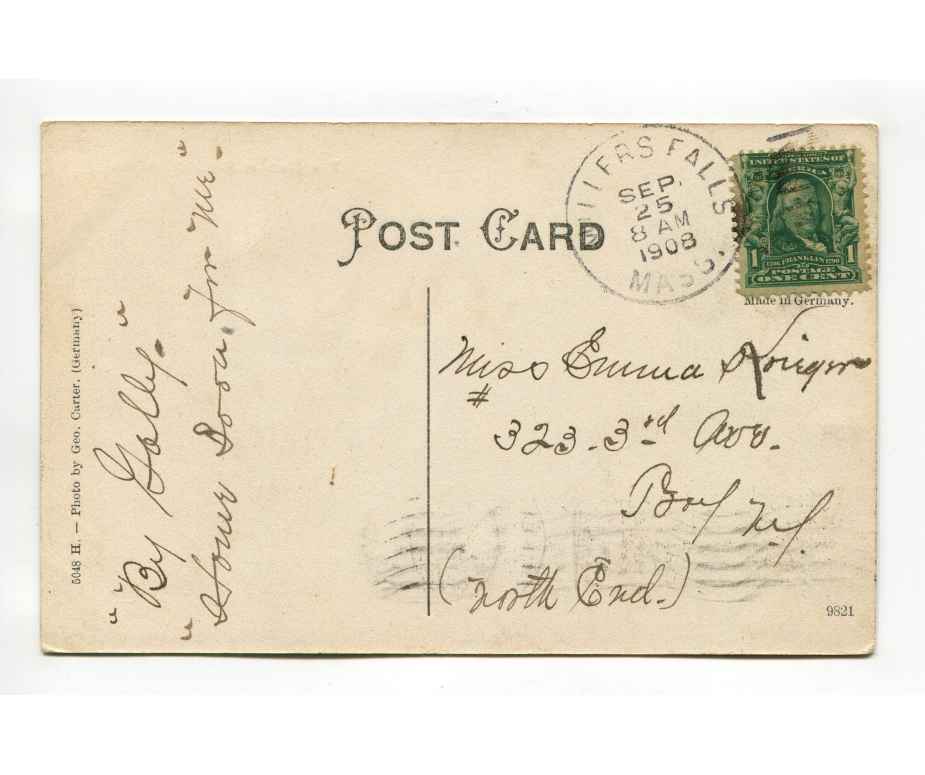 POST CARD
MILLERS FALLS
SEP.
25
8 AM
1908
MASS.
UNITED STATES OF
AMERICA
1
FRANKLIN
1
POSTAGE
ONE CENT
Made in Germany.
Miss Emma Krieger
#
323 - 3rd Ave.
Troy N.Y.
(North End.)
9821
5048 H. — Photo by Geo. Carter. (Germany)
"By Golly."
"Home Soon for Me."